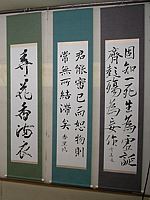 固知一死生為虛誕
齊彭殤為妄作
君能審己而恕物則
常無所結滯矣
弄花香滿衣